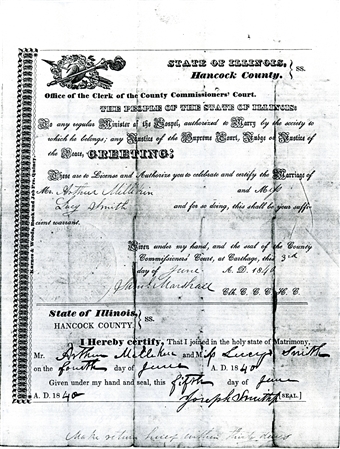 STATE OF ILLINOIS,
Hancock County. } SS.
Office of the Clerk of the County Commissioners' Court.
THE PEOPLE OF THE STATE OF ILLINOIS:
To any regular Minister of the Gospel, authorized to Marry by the society to
which he belongs; any Justice of the Supreme Court, Judge or Justice of
the Peace, GREETING;
These are to License and Authorize you to celebrate and certify the Marriage of
Mr. Arthur Milliken and Miss
Lucy Smith and for so doing, this shall be your suffi-
cient warrant.
Given under my hand, and the seal of the County
Commissioners' Court, at Carthage, this 3rd
day of June A. D. 1840
Marshall Clk. C. C. C. H. C.
State of Illinois,
HANCOCK COUNTY. } SS.
I Hereby certify, That I joined in the holy state of Matrimony,
Mr. Arthur Milliken and Miss Lucy Smith
on the fourth day of June A. D. 1840
Given under my hand and seal, this fifth day of June
A. D. 1840 Joseph Smith [SEAL.]
Make return hereof within thirty days